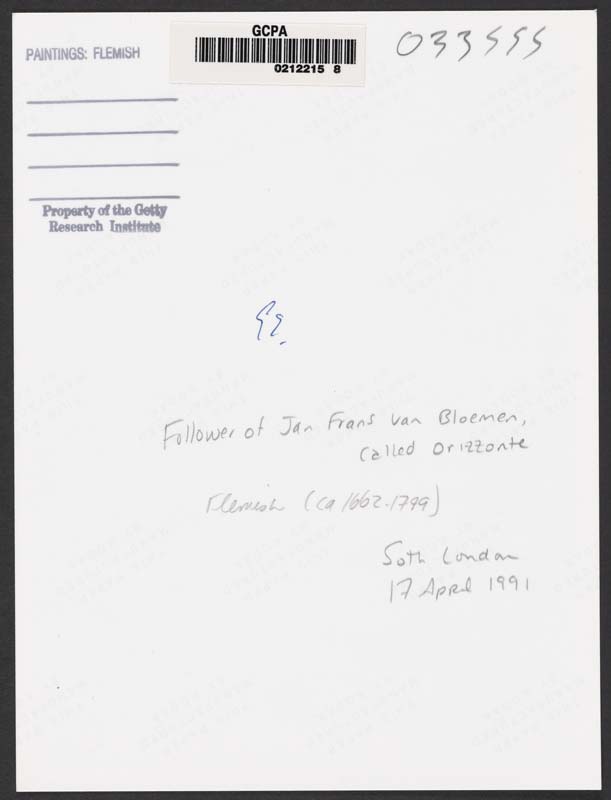 PAINTINGS: FLEMISH
GCPA
0212215 8
Property of the Getty
Research Institute
Follower of Jan Frans van Bloemen,
called Orizzonte
Flemish (ca 1662-1799)
Soth London
17 April 1991